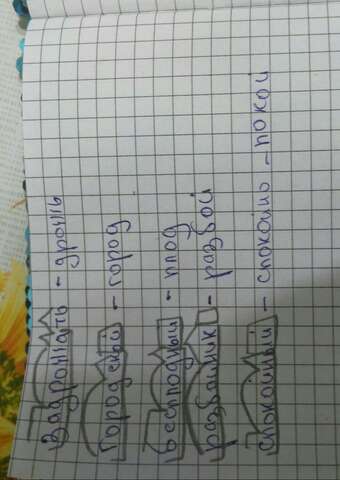 Задрожать - дрожь
Городской - город
бесплодный - плод
разбойник - разбой
спокойный - спокойно - покой